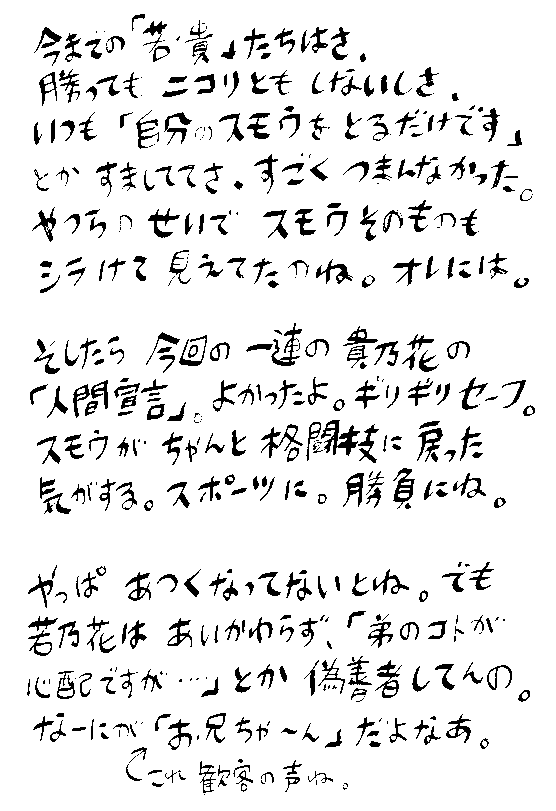 今までの「若・貴」たちはさ、
勝っても ニコリとも しないしさ、
いつも「自分のスモウを とるだけです」
とか すましててさ、すごく つまんなかった。
やつらの せいで スモウそのものも
シラけて 見えてたのね。オレには。
そしたら 今回の 一連の 貴乃花の
「人間宣言」。よかったよ。ギリギリセーフ。
スモウが ちゃんと 格闘技に 戻った
気がする。スポーツに。勝負にね。
やっぱ あつくなってないとね。でも
若乃花は あいかわらず、「弟のコトが
心配ですが…」とか 偽善者してんの。
なーにが「お兄ちゃ〜ん」だよなあ。
これ 観客の声ね。